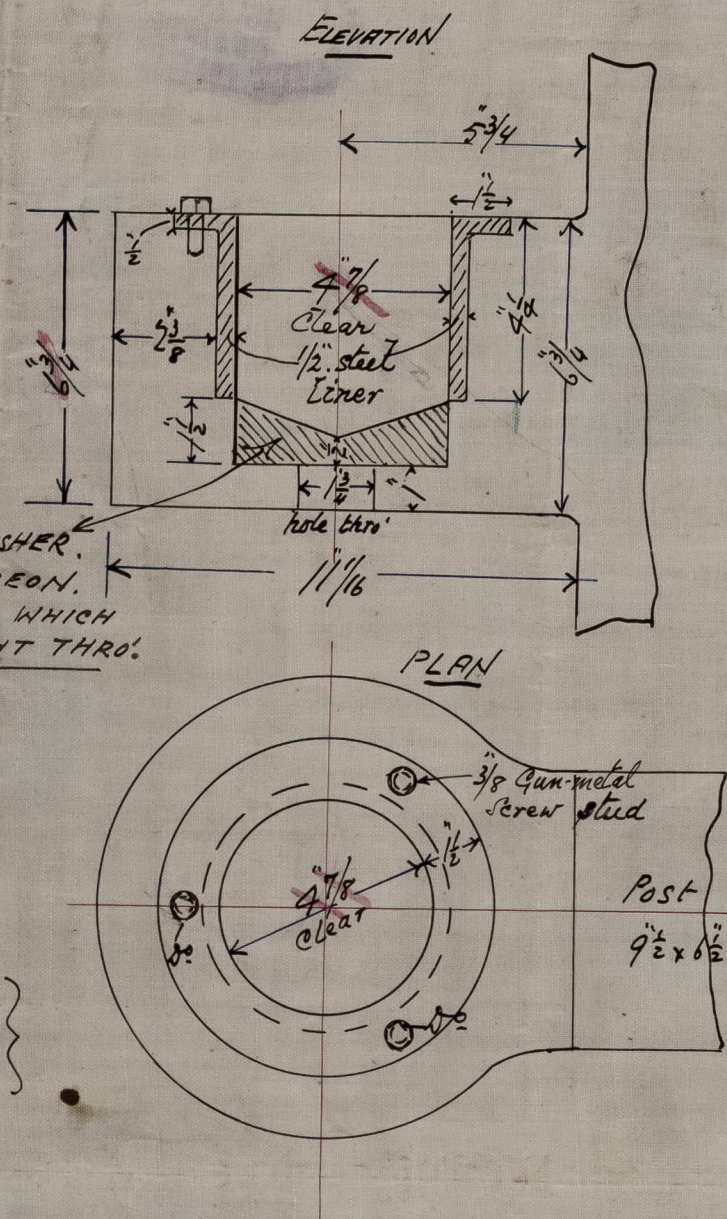 ELEVATION
5"3/4
1"1/2
1/2
4"7/8
Clear
2"3/8
1/2" steel
liner
6"3/4
6"3/4
1"1/2
1"3/4
1"
hole thro'
11"1/16
SHER.
EON.
WHICH
NT THRO'.
PLAN
3/8" Gun-metal
Screw stud
1"1/2
4"7/8
Clear
Do
Do
Post
9"1/2 x 6"1/2